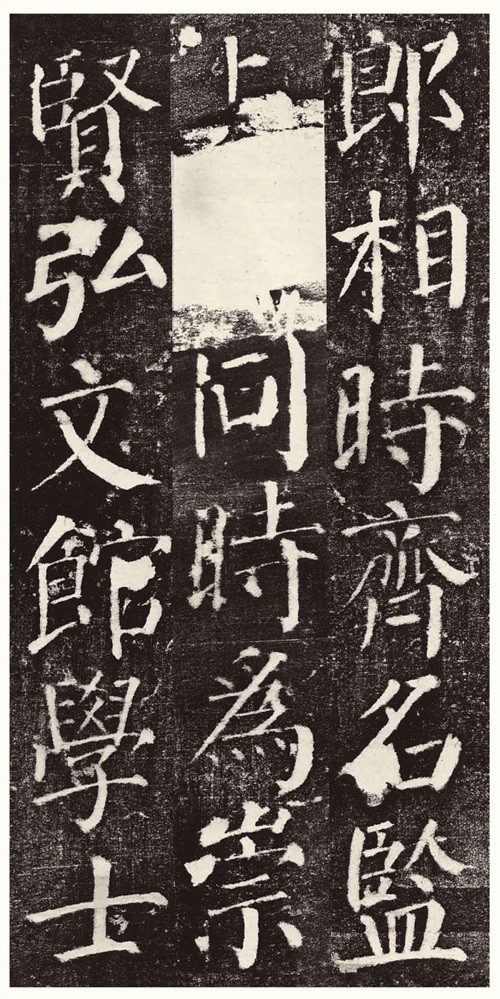 郎相時齊名監
同時為崇
賢弘文館學士